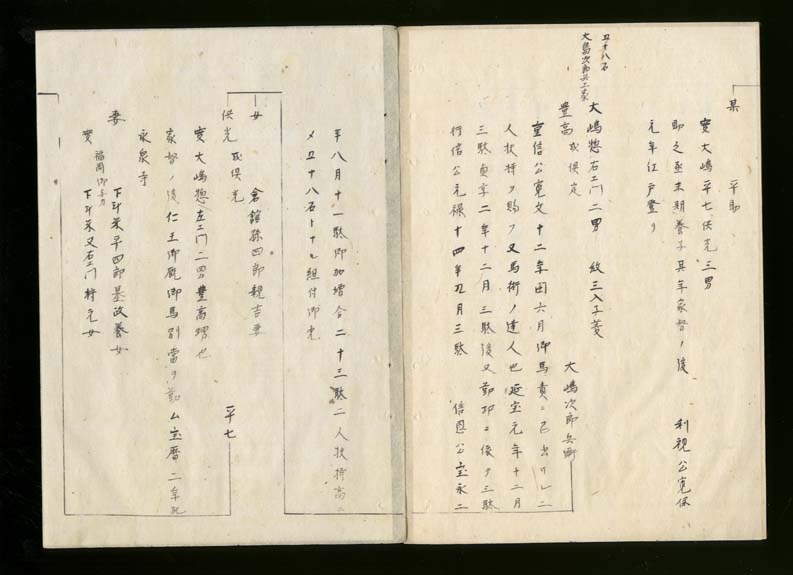 某 平助
実大嶋平七供光三男 利視公寛保
即之丞末期養子其年家督ノ後
元年江戸登り
五十八石
大島次郎兵エ家
大嶋惣右エ門二男 紋三入子菱
大嶋次郎兵衛
豊高 或供定
重信公寛文十二年閏六月御馬責ニ召出サレ二
人扶持ヲ賜フ又馬術ノ達人也延宝元年十二月
三駄貞享二年十二月三駄後又勤功ニ依テ三駄
行信公元禄十四年五月三駄 信恩公宝永二
年八月十一駄御加増合二十三駄二人扶持高ニ
〆五十八石トナル組付御免
女 倉舘孫四郎親吉妻
供光 或倶光 平七
実大嶋惣左エ門二男豊高甥也
家督ノ後仁王御厩御馬別當ヲ勤ム宝暦二年死
永泉寺
妻 下斗米平四郎基政養女
福岡御与力
実 下斗米又右エ門将元女